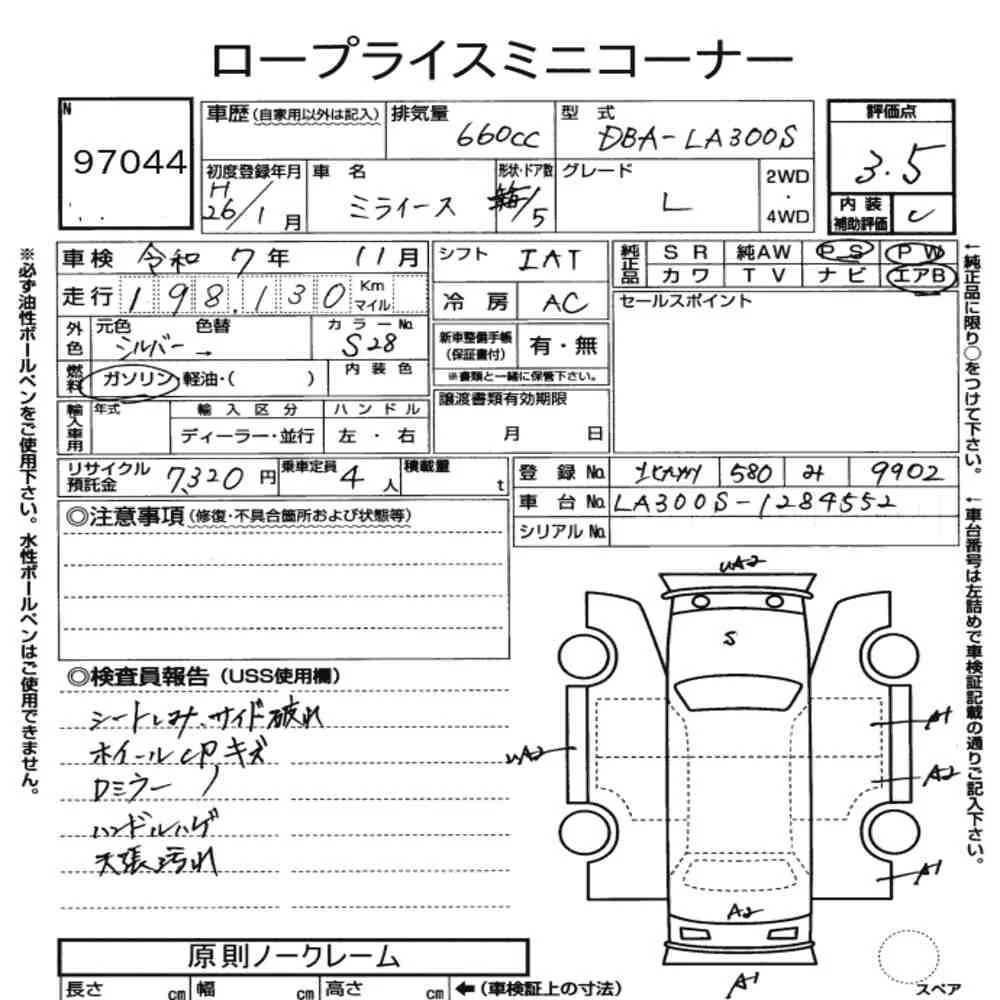 ロープライスミニコーナー
N
97044
車歴(自家用以外は記入)
排気量
660cc
型 式
DBA-LA300S
評価点
3.5
初度登録年月
H
26/1月
車 名
ミライース
形状・ドア数
箱/5
グレード
L
2WD
・
4WD
内 装
補助評価
C
車検 令和 7年 11月
シフト
IAT
純正品
SR 純AW PS PW
カワ TV ナビ エアB
走行 198,130 Km
マイル
冷 房
AC
セールスポイント
外色
元色 色替
シルバー →
カラーNo.
S28
新車整備手帳
(保証書付)
有・無
※書類と一緒に保管下さい。
燃料
ガソリン・軽油・( )
内 装 色
輸入車用
年式
輸 入 区 分
ハ ン ド ル
ディーラー・並行
左 ・ 右
譲渡書類有効期限
月 日
リサイクル
預託金
7,320 円
乗車定員
4 人
積載量
t
登 録 No.
北九州 580 み 9902
車 台 No.
LA300S-1284552
シリアル No.
◎注意事項(修復・不具合箇所および状態等)
◎検査員報告(USS使用欄)
シートしみ、サイド破れ
ホイールCP、キズ
Dミラー 〃
ハンドルハゲ
天張汚れ
UA2
S
A1
UA2
A2
A1
A2
A1
スペア
原則ノークレーム
長さ cm 幅 cm 高さ cm ←(車検証上の寸法)
※必ず油性ボールペンをご使用下さい。水性ボールペンはご使用できません。
←純正品に限り○をつけて下さい。
←車台番号は左詰めで車検証記載の通りご記入下さい。